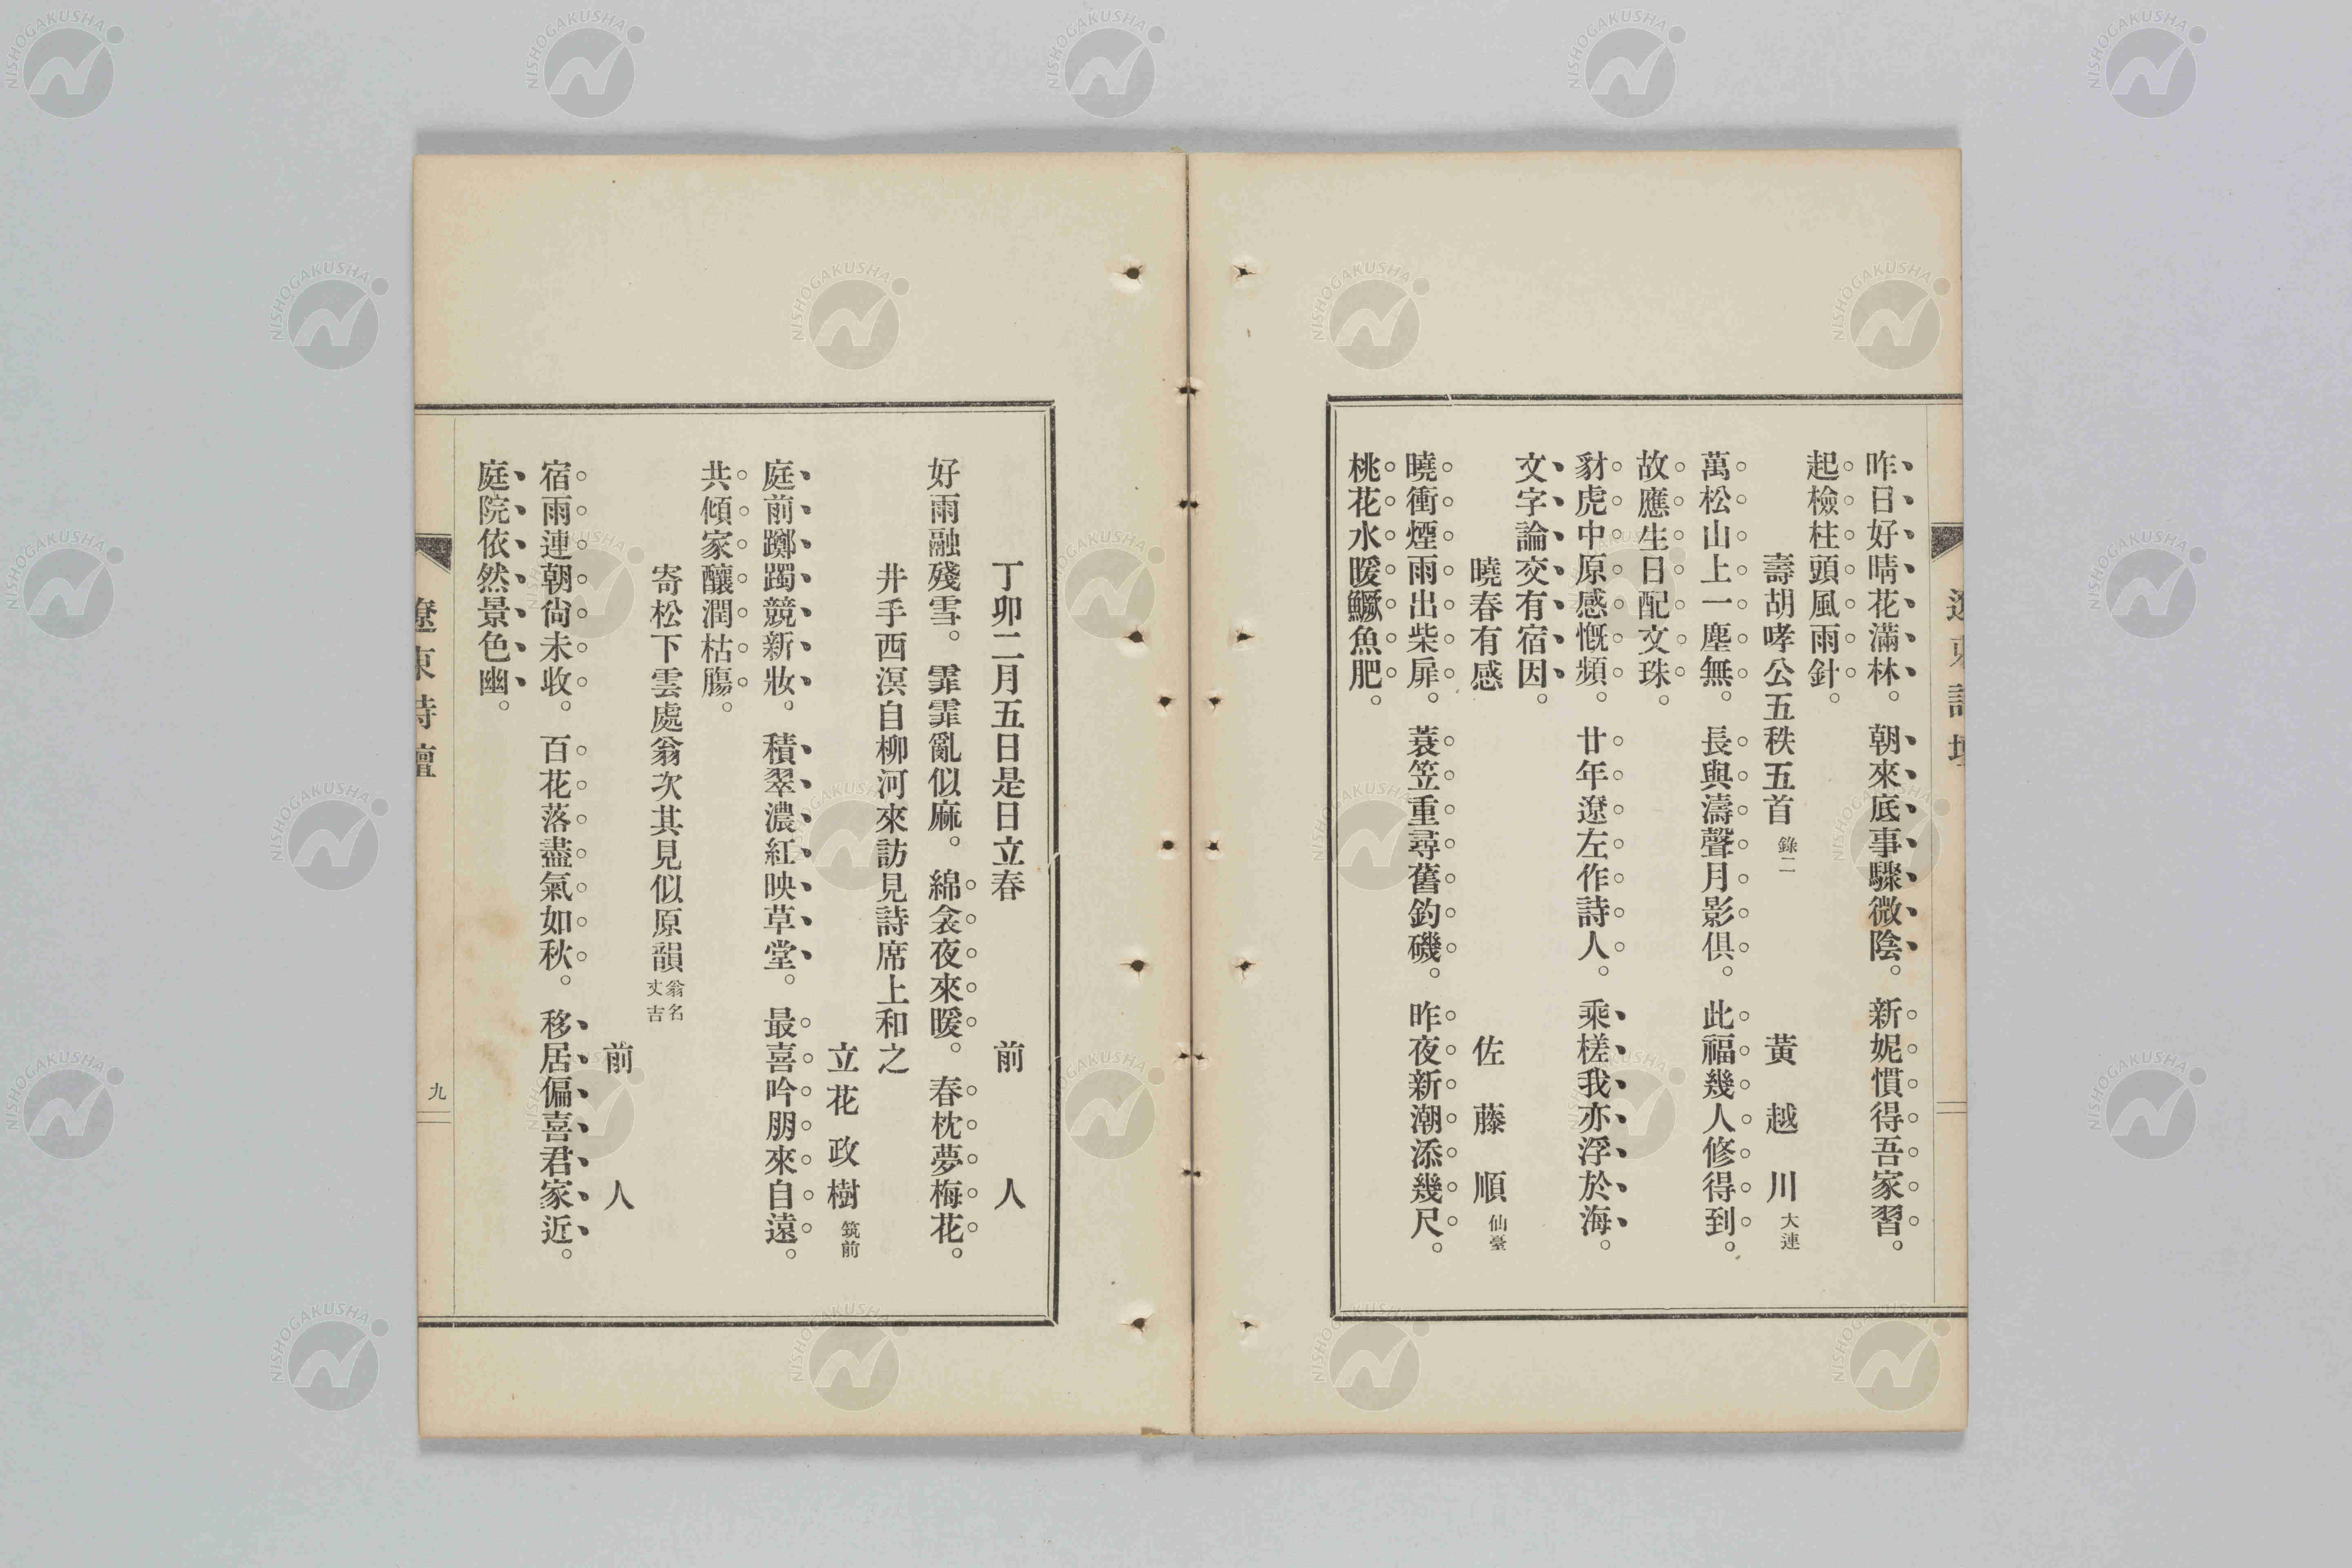 昨日好晴花滿林。朝來底事驟微陰。新妮慣得吾家習。
起檢柱頭風雨針。
壽胡哮公五秩五首 錄二
黃越川 大連
萬松山上一塵無。長與濤聲月影俱。此福幾人修得到。
故應生日配文珠。
豺虎中原感慨頻。廿年遼左作詩人。乘槎我亦浮於海。
文字論交有宿因。
曉春有感
佐藤順 仙臺
曉衝煙雨出柴扉。蓑笠重尋舊釣磯。昨夜新潮添幾尺。
桃花水暖鱖魚肥。
遼東詩壇
丁卯二月五日是日立春
前人
好雨融殘雪。霏霏亂似麻。綿衾夜來暖。春枕夢梅花。
井手西溟自柳河來訪見詩席上和之
立花政樹 筑前
庭前躑躅競新妝。積翠濃紅映草堂。最喜吟朋來自遠。
共傾家釀潤枯膓。
寄松下雲處翁次其見似原韻 翁名丈吉
前人
宿雨連朝尙未收。百花落盡氣如秋。移居偏喜君家近。
庭院依然景色幽。
遼東詩壇
九
NISHOGAKUSHA